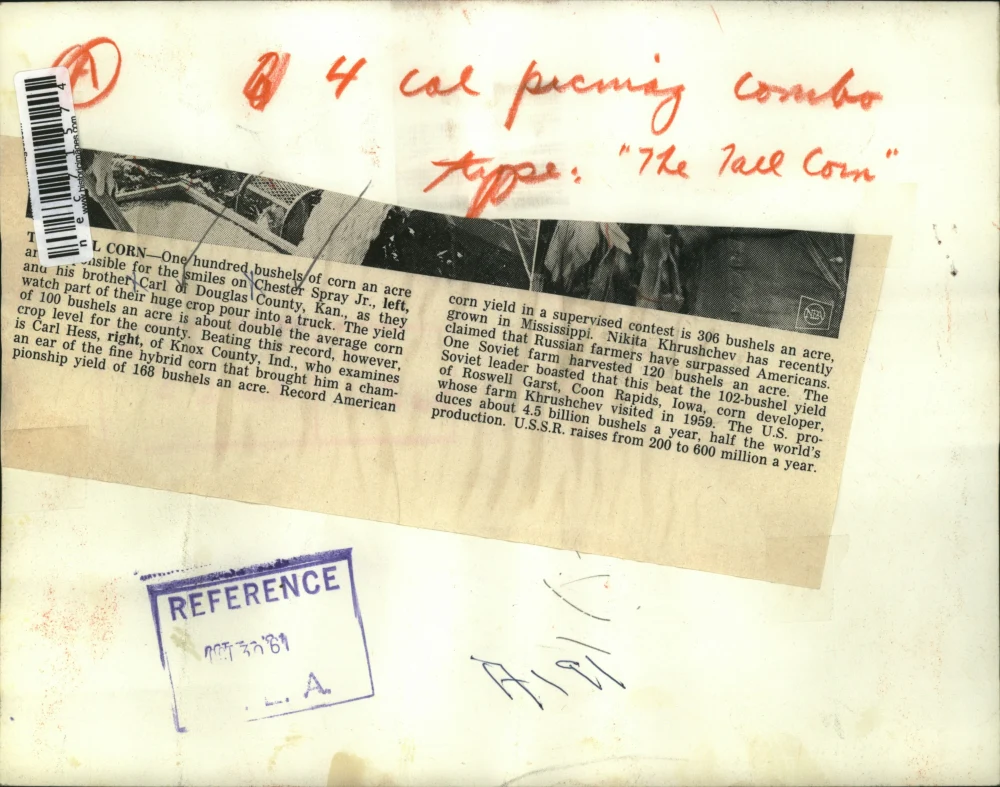 A
B 4 col picmag combo
type: "The Tall Corn"
nec 71574
NEA
L CORN—One hundred bushels of corn an acre
nsible for the smiles on Chester Spray Jr., left,
and his brother Carl of Douglas County, Kan., as they
watch part of their huge crop pour into a truck. The yield
of 100 bushels an acre is about double the average corn
crop level for the county. Beating this record, however,
is Carl Hess, right, of Knox County, Ind., who examines
an ear of the fine hybrid corn that brought him a cham-
pionship yield of 168 bushels an acre. Record American
corn yield in a supervised contest is 306 bushels an acre,
grown in Mississippi. Nikita Khrushchev has recently
claimed that Russian farmers have surpassed Americans.
One Soviet farm harvested 120 bushels an acre. The
Soviet leader boasted that this beat the 102-bushel yield
of Roswell Garst, Coon Rapids, Iowa, corn developer,
whose farm Khrushchev visited in 1959. The U.S. pro-
duces about 4.5 billion bushels a year, half the world's
production. U.S.S.R. raises from 200 to 600 million a year.
REFERENCE
L. A.